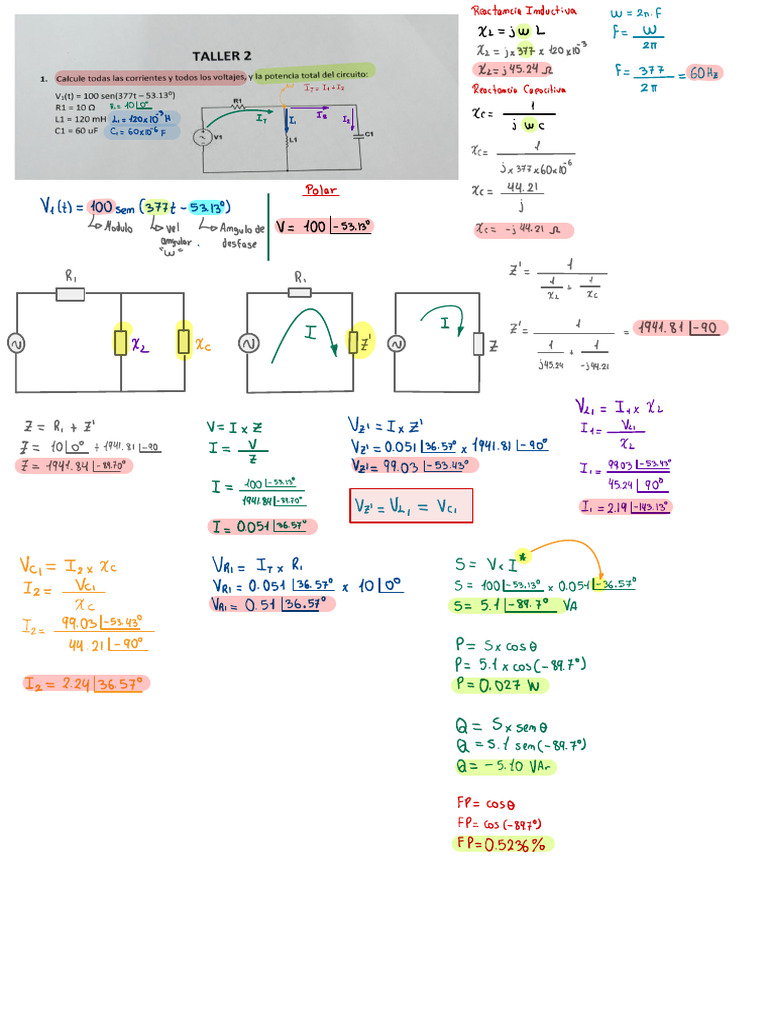 TALLER 2
1. Calcule todas las corrientes y todos los voltajes, y la potencia total del circuito:
V₁(t) = 100 sen(377t – 53.13º)
R1 = 10 Ω R₁ = 10∠0º
L1 = 120 mH L₁ = 120x10⁻³ H
C1 = 60 uF C₁ = 60x10⁻⁶ F
I_T = I₁ + I₂
R1
I_T
I₁
I_B
I₂
V1
L1
C1
Reactancia Inductiva
X_L = j w L
X_L = j x 377 x 120x10⁻³
X_L = j 45.24 Ω
Reactancia Capacitiva
X_C = 1 / j w c
X_C = 1 / j x 377 x 60x10⁻⁶
X_C = 44.21 / j
X_C = -j 44.21 Ω
w = 2π.f
F = w / 2π
F = 377 / 2π = 60 Hz
V₁(t) = 100 sem (377t - 53.13º)
Modulo
Vel angular "w"
Angulo de desfase
Polar
V = 100 ∠-53.13º
R₁
X_L
X_C
R₁
I
Z'
I
Z
Z' = 1 / (1/X_L + 1/X_C)
Z' = 1 / (1/j45.24 + 1/-j44.21) = 1941.81 ∠-90
Z = R₁ + Z'
Z = 10∠0º + 1941.81∠-90
Z = 1941.84 ∠-89.70º
V = I x Z
I = V / Z
I = 100∠-53.13º / 1941.84∠-89.70º
I = 0.051 ∠36.57º
V_Z' = I x Z'
V_Z' = 0.051 ∠36.57º x 1941.81 ∠-90º
V_Z' = 99.03 ∠-53.43º
V_Z' = V_L₁ = V_C₁
V_L₁ = I₁ x X_L
I₁ = V_L₁ / X_L
I₁ = 99.03∠-53.43º / 45.24∠90º
I₁ = 2.19 ∠-143.13º
V_C₁ = I₂ x X_C
I₂ = V_C₁ / X_C
I₂ = 99.03∠-53.43º / 44.21∠-90º
I₂ = 2.24 ∠36.57º
V_R₁ = I_T x R₁
V_R₁ = 0.051 ∠36.57º x 10∠0º
V_R₁ = 0.51 ∠36.57º
S = V x I*
S = 100∠-53.13º x 0.051∠-36.57º
S = 5.1 ∠-89.7º VA
P = S x cosθ
P = 5.1 x cos(-89.7º)
P = 0.027 W
Q = S x senθ
Q = 5.1 sen(-89.7º)
Q = -5.10 VAr
FP = cosθ
FP = cos(-89.7º)
FP = 0.5236%